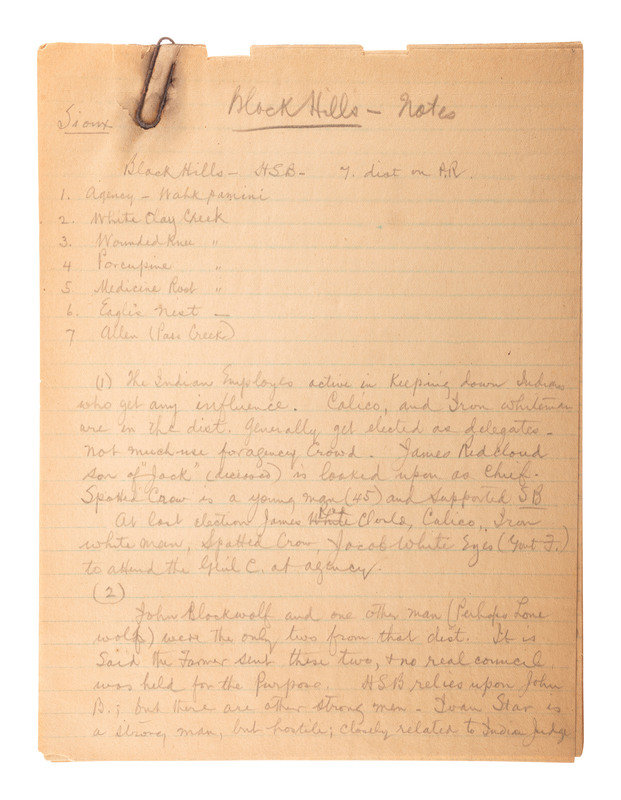 Black Hills - Notes
Sioux
Black Hills - HSB - 7. dist on P.R.
1. Agency - Wahk pamini
2. White Clay Creek
3. Wounded Knee "
4 Porcupine "
5 Medicine Root "
6. Eagle's Nest -
7 Allen (Pass Creek)
(1) The Indian Employes active in keeping down Indians
who get any influence. Calico, and Iron whiteman
are in the dist. Generally get elected as delegates -
not much use for agency crowd. James Red cloud
son of "Jack" (deceased) is looked upon as Chief.
Spotted Crow is a young man (45) and supported SB
At last election James Red Cloud, Calico, Iron
white man, Spotted Crow, Jacob White Eyes (Govt F.)
to attend the Genl C. at agency.
(2)
John Blackwolf and one other man (Perhaps Lone
wolf) were the only two from that dist. It is
Said the Farmer sent these two, & no real council
was held for the Purpose. HSB relies upon John
B.; but there are other strong men - Ivan Star is
a strong man, but hostile; closely related to Indian Judge